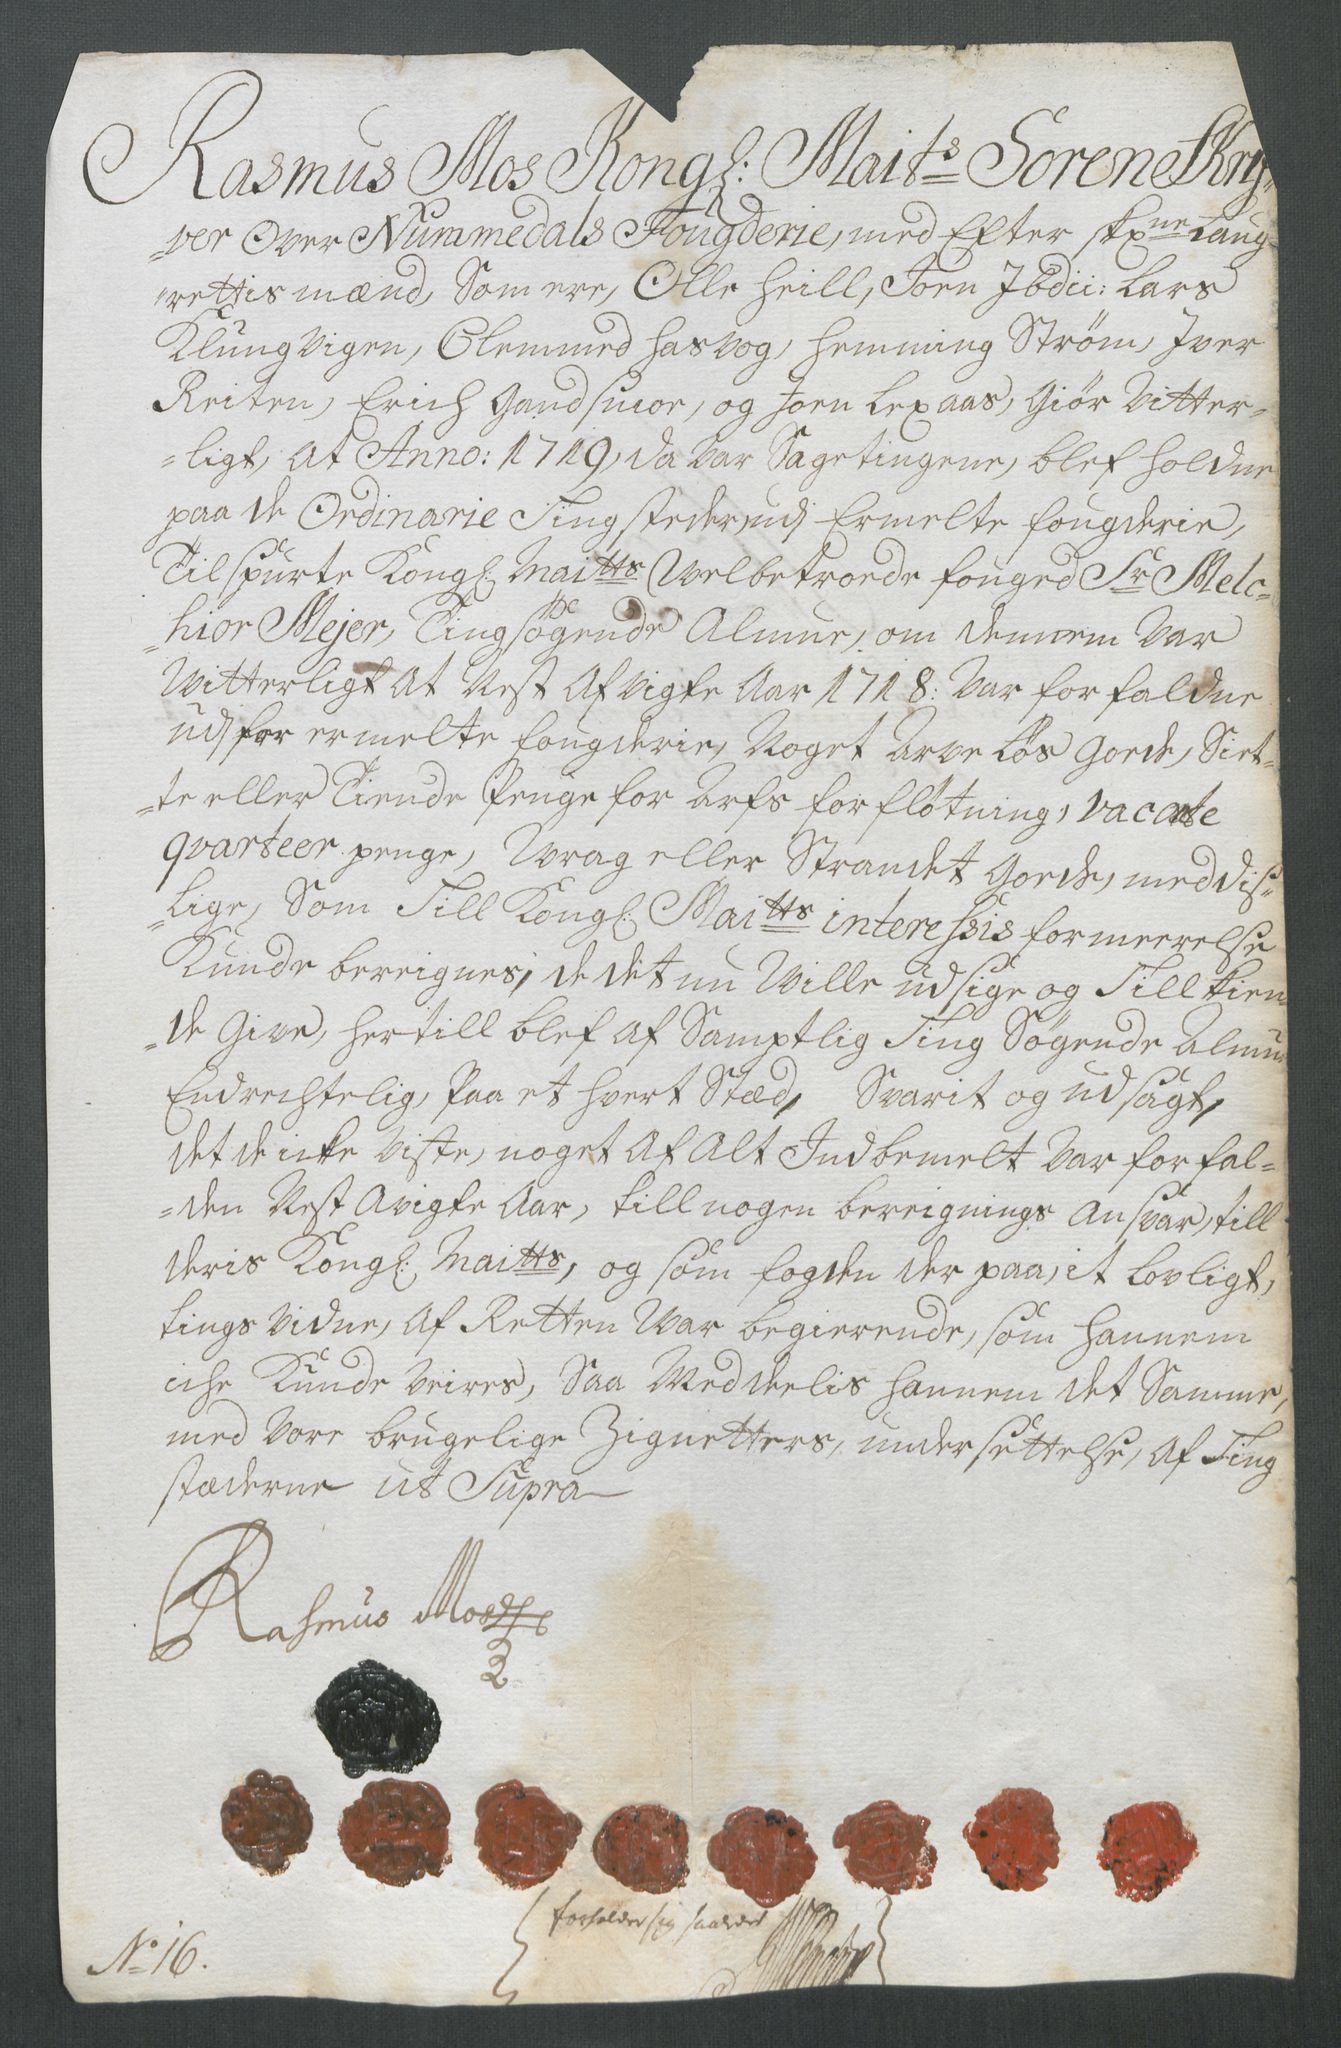 Rasmus Mos Kongl: Maits Sorenskry=
=ver over Nummedals Fougderie, med Efter skrne Laug=
=rettis mænd, Som ere, Olle Heill, Joen Ibdii: Lars
Klungvigen, Clemmed Hasvog, Hemming Strøm, Iver
Reiten, Erich Gandsmoe, og Joen Lexaas, Giør Vitter=
=ligt, At Anno: 1719, da Var Sagetingene, blef holdne
paa de Ordinarie Tingsteder, udj Ermelte fougderie,
Tilspurte Kongl: Maitts Welbetroede fouged Sr Melc=
=hior Mejer, Tingsøgende Almue, om dennem Var
Witterligt At Nest Afvigte Aar 1718: Var forfaldne
udj for ermelte fougderie, Noget Arveløs Goeds, Siet=
=te eller Tiende Penge for Arfs forfløtning, vacante
qvarteer penge, Wrag eller Strandet Goeds, med dis=
=lige, Som Till Kongl: Maitts interessis formeerelse
Kunde bereignes, de det nu Wille udsige og Till kien=
=de Give, hertill blef af Samptlig Ting Søgende Almue
Endrechtelig, Paa et hvert Stæd, Svarit og udsagt,
det de icke Viste, noget Af Alt Indbemelt Var forfal=
=den Nest Avigte Aar, till nogen bereignings Ansvar, till
deris Kongl: Maitts, og som fogden der paa, it Lovligt,
tings Vidne, Af Retten War begierende, som hannem
iche Kunde Veires, Saa Meddeelis hannem det Samme,
med Vore brugelige Zignetters, undersettelse, Af Ting
stæderne ut Supra
Rasmus Moss
forholder sig saaledes
No 16.